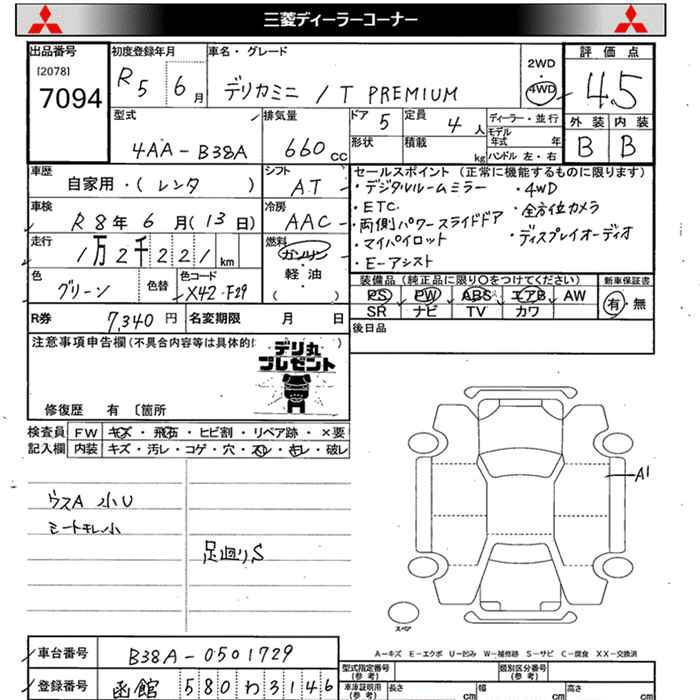 三菱ディーラーコーナー
出品番号 初度登録年月 車名・グレード 評価点
[2078] R5 6月 デリカミニ / T PREMIUM 2WD・4WD 4.5
7094
型式 排気量 ドア 定員 ディーラー・並行 外装 内装
4AA-B38A 660cc 5 4人 モデル年式 年 B B
形状 積載 kg ハンドル 左・右
車歴 シフト セールスポイント（正常に機能するものに限ります）
自家用・(レンタ) AT
・デジタルルームミラー ・4WD
車検 冷房 ・ETC ・全方位カメラ
R8年6月(13日) AAC ・両側パワースライドドア
走行 燃料 ・マイパイロット ・ディスプレイオーディオ
1万2千221km ガソリン ・E-アシスト
軽油
( )
色 色替 色コード 装備品（純正品に限り○をつけてください） 新車保証書
グリーン X42・F29 PS PW ABS エアB AW 有・無
SR ナビ TV カワ
R券 7,340円 名変期限 月 日 後日品
注意事項申告欄(不具合内容等は具体的に
デリ丸
プレゼント
修復歴 有 〔箇所
検査員 FW キズ・飛石・ヒビ割・リペア跡・×要
記入欄 内装 キズ・汚レ・コゲ・穴・スレ・キレ・破レ
ウスA 小U
ミートキレ小
足廻りS
A1
スペア
A-キズ E-エクボ U-凹み W-補修跡 S-サビ C-腐食 XX-交換済
車台番号 B38A-0501729
型式指定番号(参考) 類別区分番号(参考)
登録番号 函館 580 わ 3146
車庫証明用(参考) 長さ cm 幅 cm 高さ cm